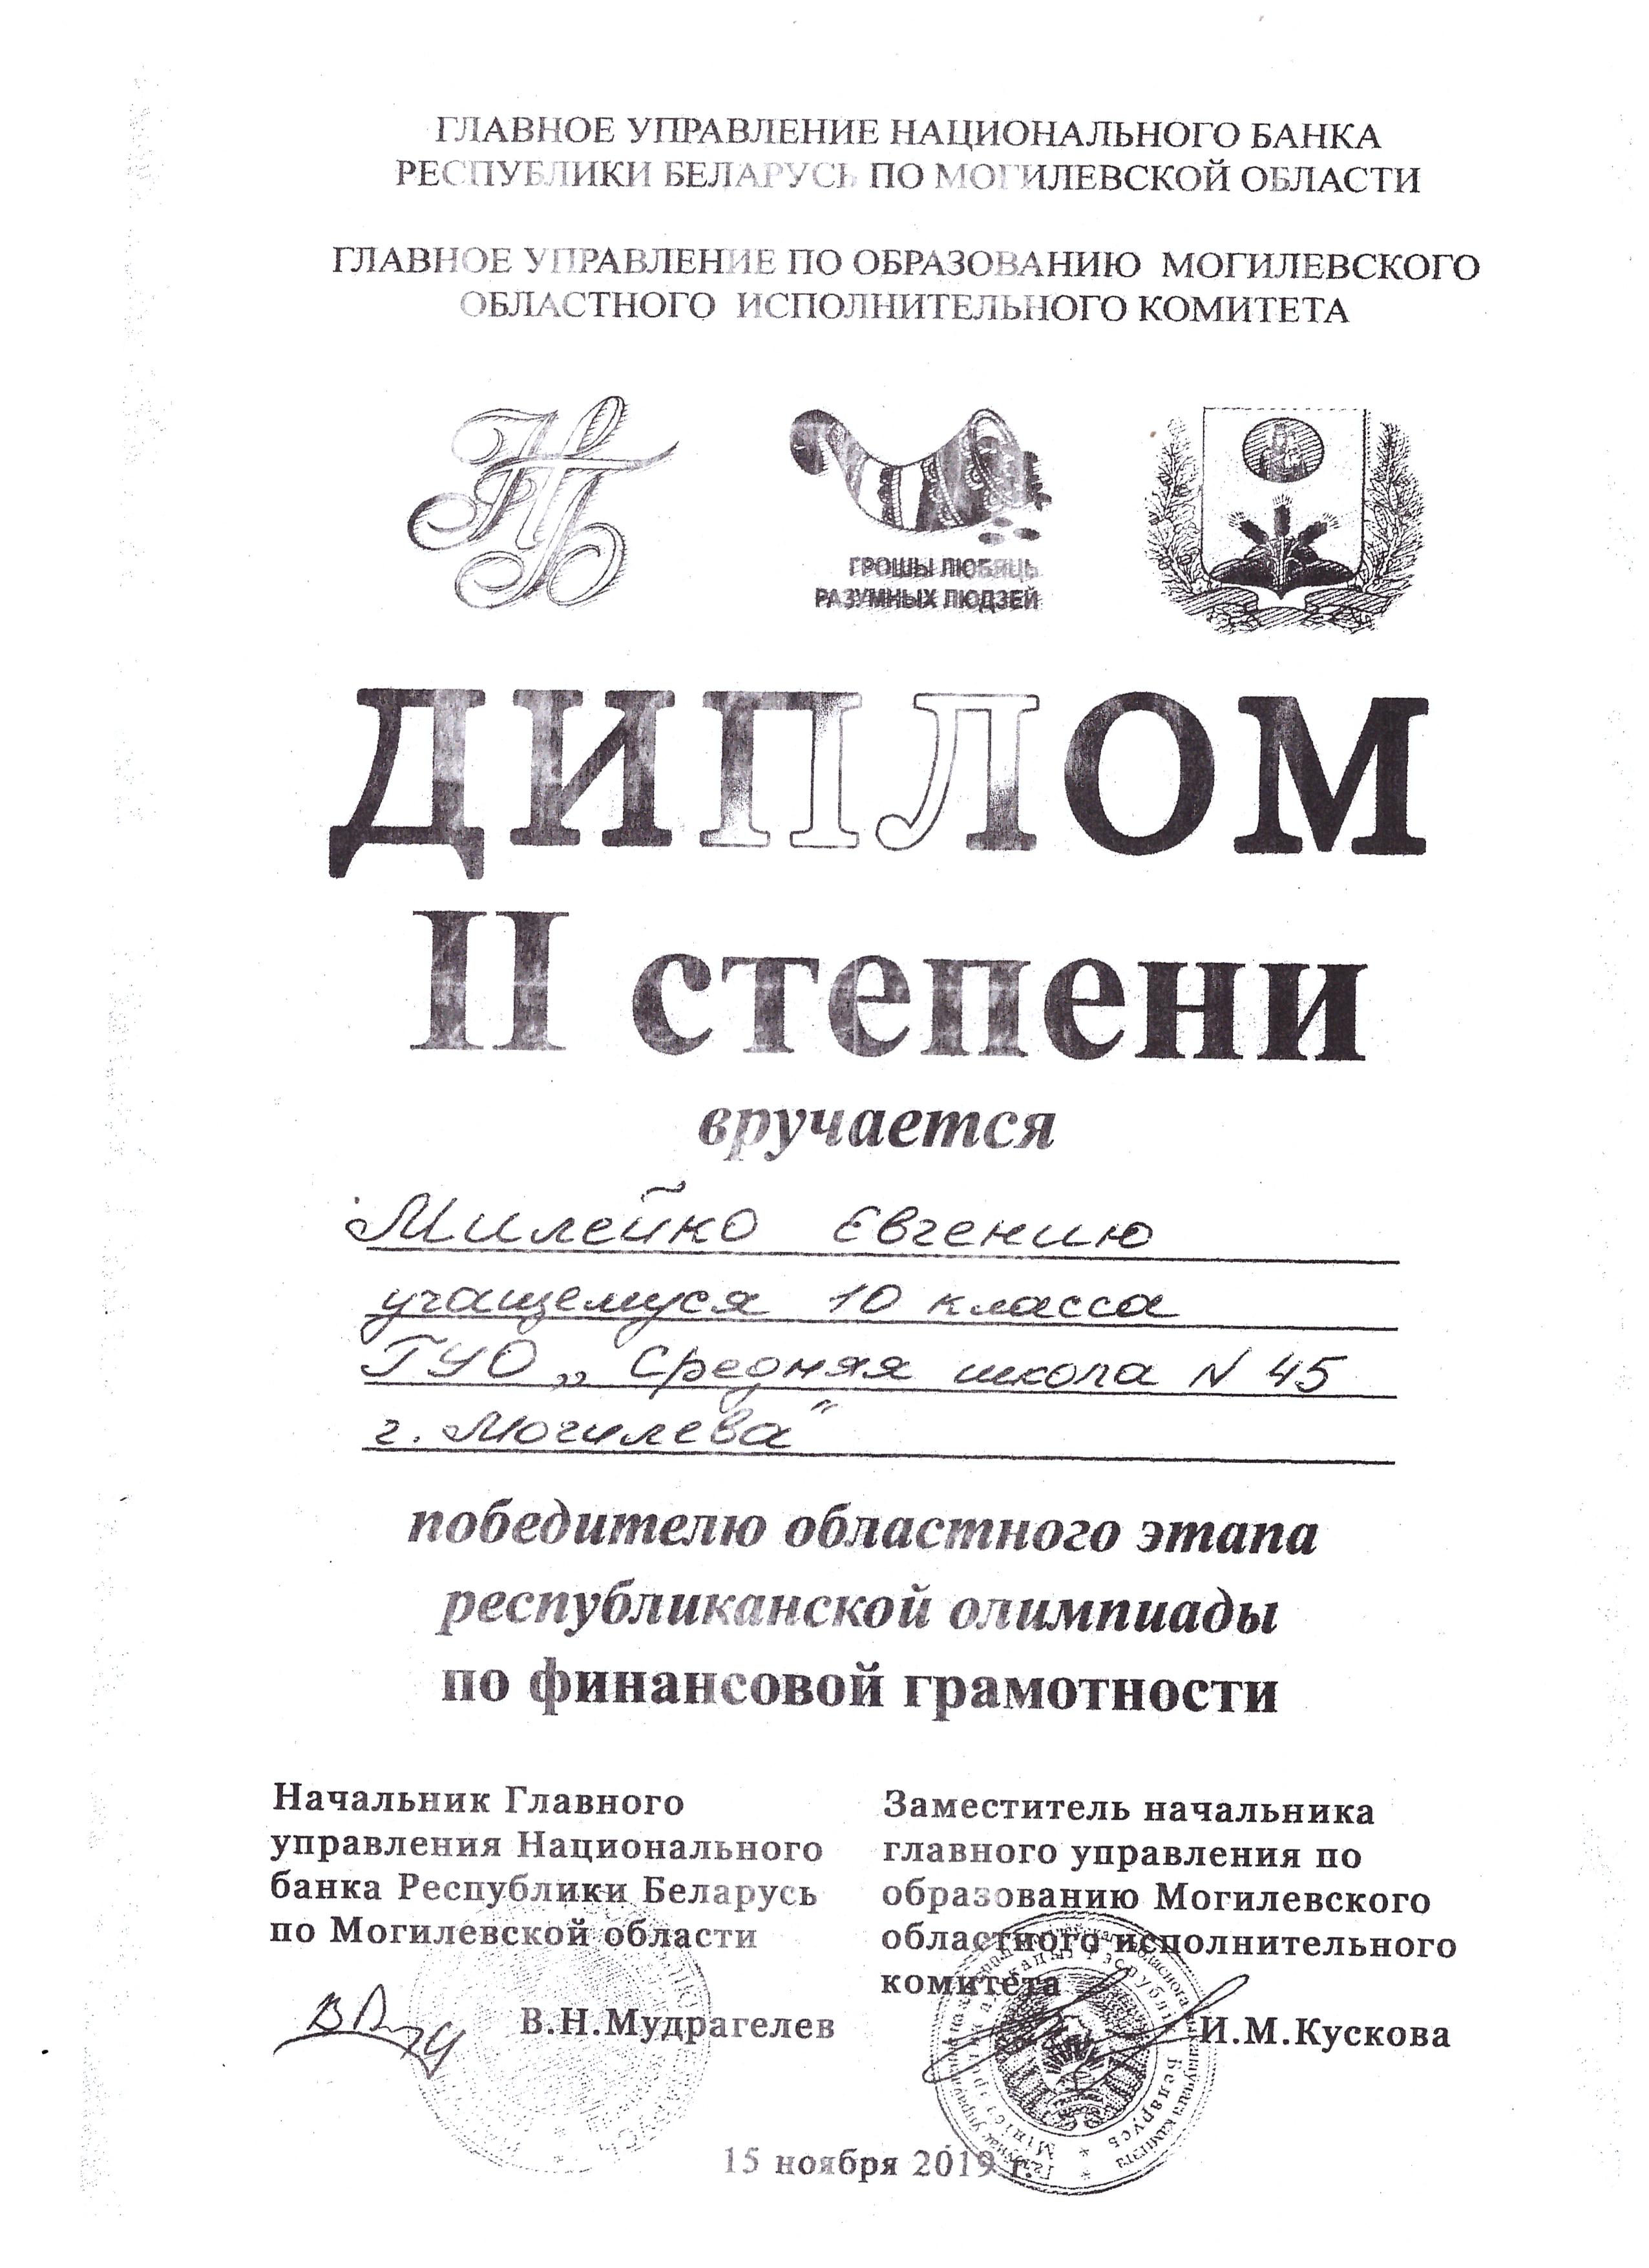 ГЛАВНОЕ УПРАВЛЕНИЕ НАЦИОНАЛЬНОГО БАНКА
РЕСПУБЛИКИ БЕЛАРУСЬ ПО МОГИЛЕВСКОЙ ОБЛАСТИ
ГЛАВНОЕ УПРАВЛЕНИЕ ПО ОБРАЗОВАНИЮ МОГИЛЕВСКОГО
ОБЛАСТНОГО ИСПОЛНИТЕЛЬНОГО КОМИТЕТА
НБ
ГРОШЫ ЛЮБЯЦЬ
РАЗУМНЫХ ЛЮДЗЕЙ
ДИПЛОМ
II степени
вручается
Милейко Евгению
учащемуся 10 класса
ГУО „Средняя школа N 45
г. Могилева"
победителю областного этапа
республиканской олимпиады
по финансовой грамотности
Начальник Главного
управления Национального
банка Республики Беларусь
по Могилевской области
В.Н.Мудрагелев
Заместитель начальника
главного управления по
образованию Могилевского
областного исполнительного
комитета
И.М.Кускова
15 ноября 2019 г.